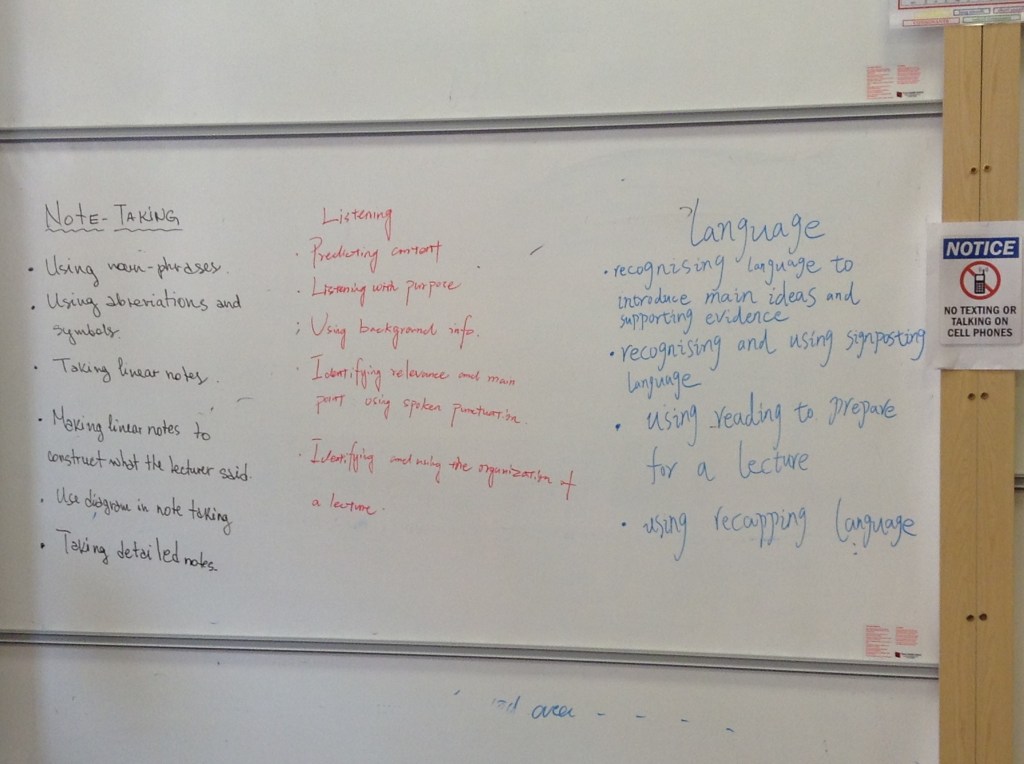 NOTE-TAKING
• Using noun-phrases.
• Using abreviations and
symbols.
• Taking linear notes.
• Making linear notes to
construct what the lecturer said.
• Use diagram in note taking
• Taking detailed notes.
Listening
• Predicting content
• Listening with purpose
• Using background info.
• Identifying relevance and main
point using spoken punctuation.
• Identifying and using the organization of
a lecture.
language
• recognising language to
introduce main ideas and
supporting evidence
• recognising and using signposting
language
• using reading to prepare
for a lecture
• using recapping language
area - - - -
NOTICE
NO TEXTING OR
TALKING ON
CELL PHONES